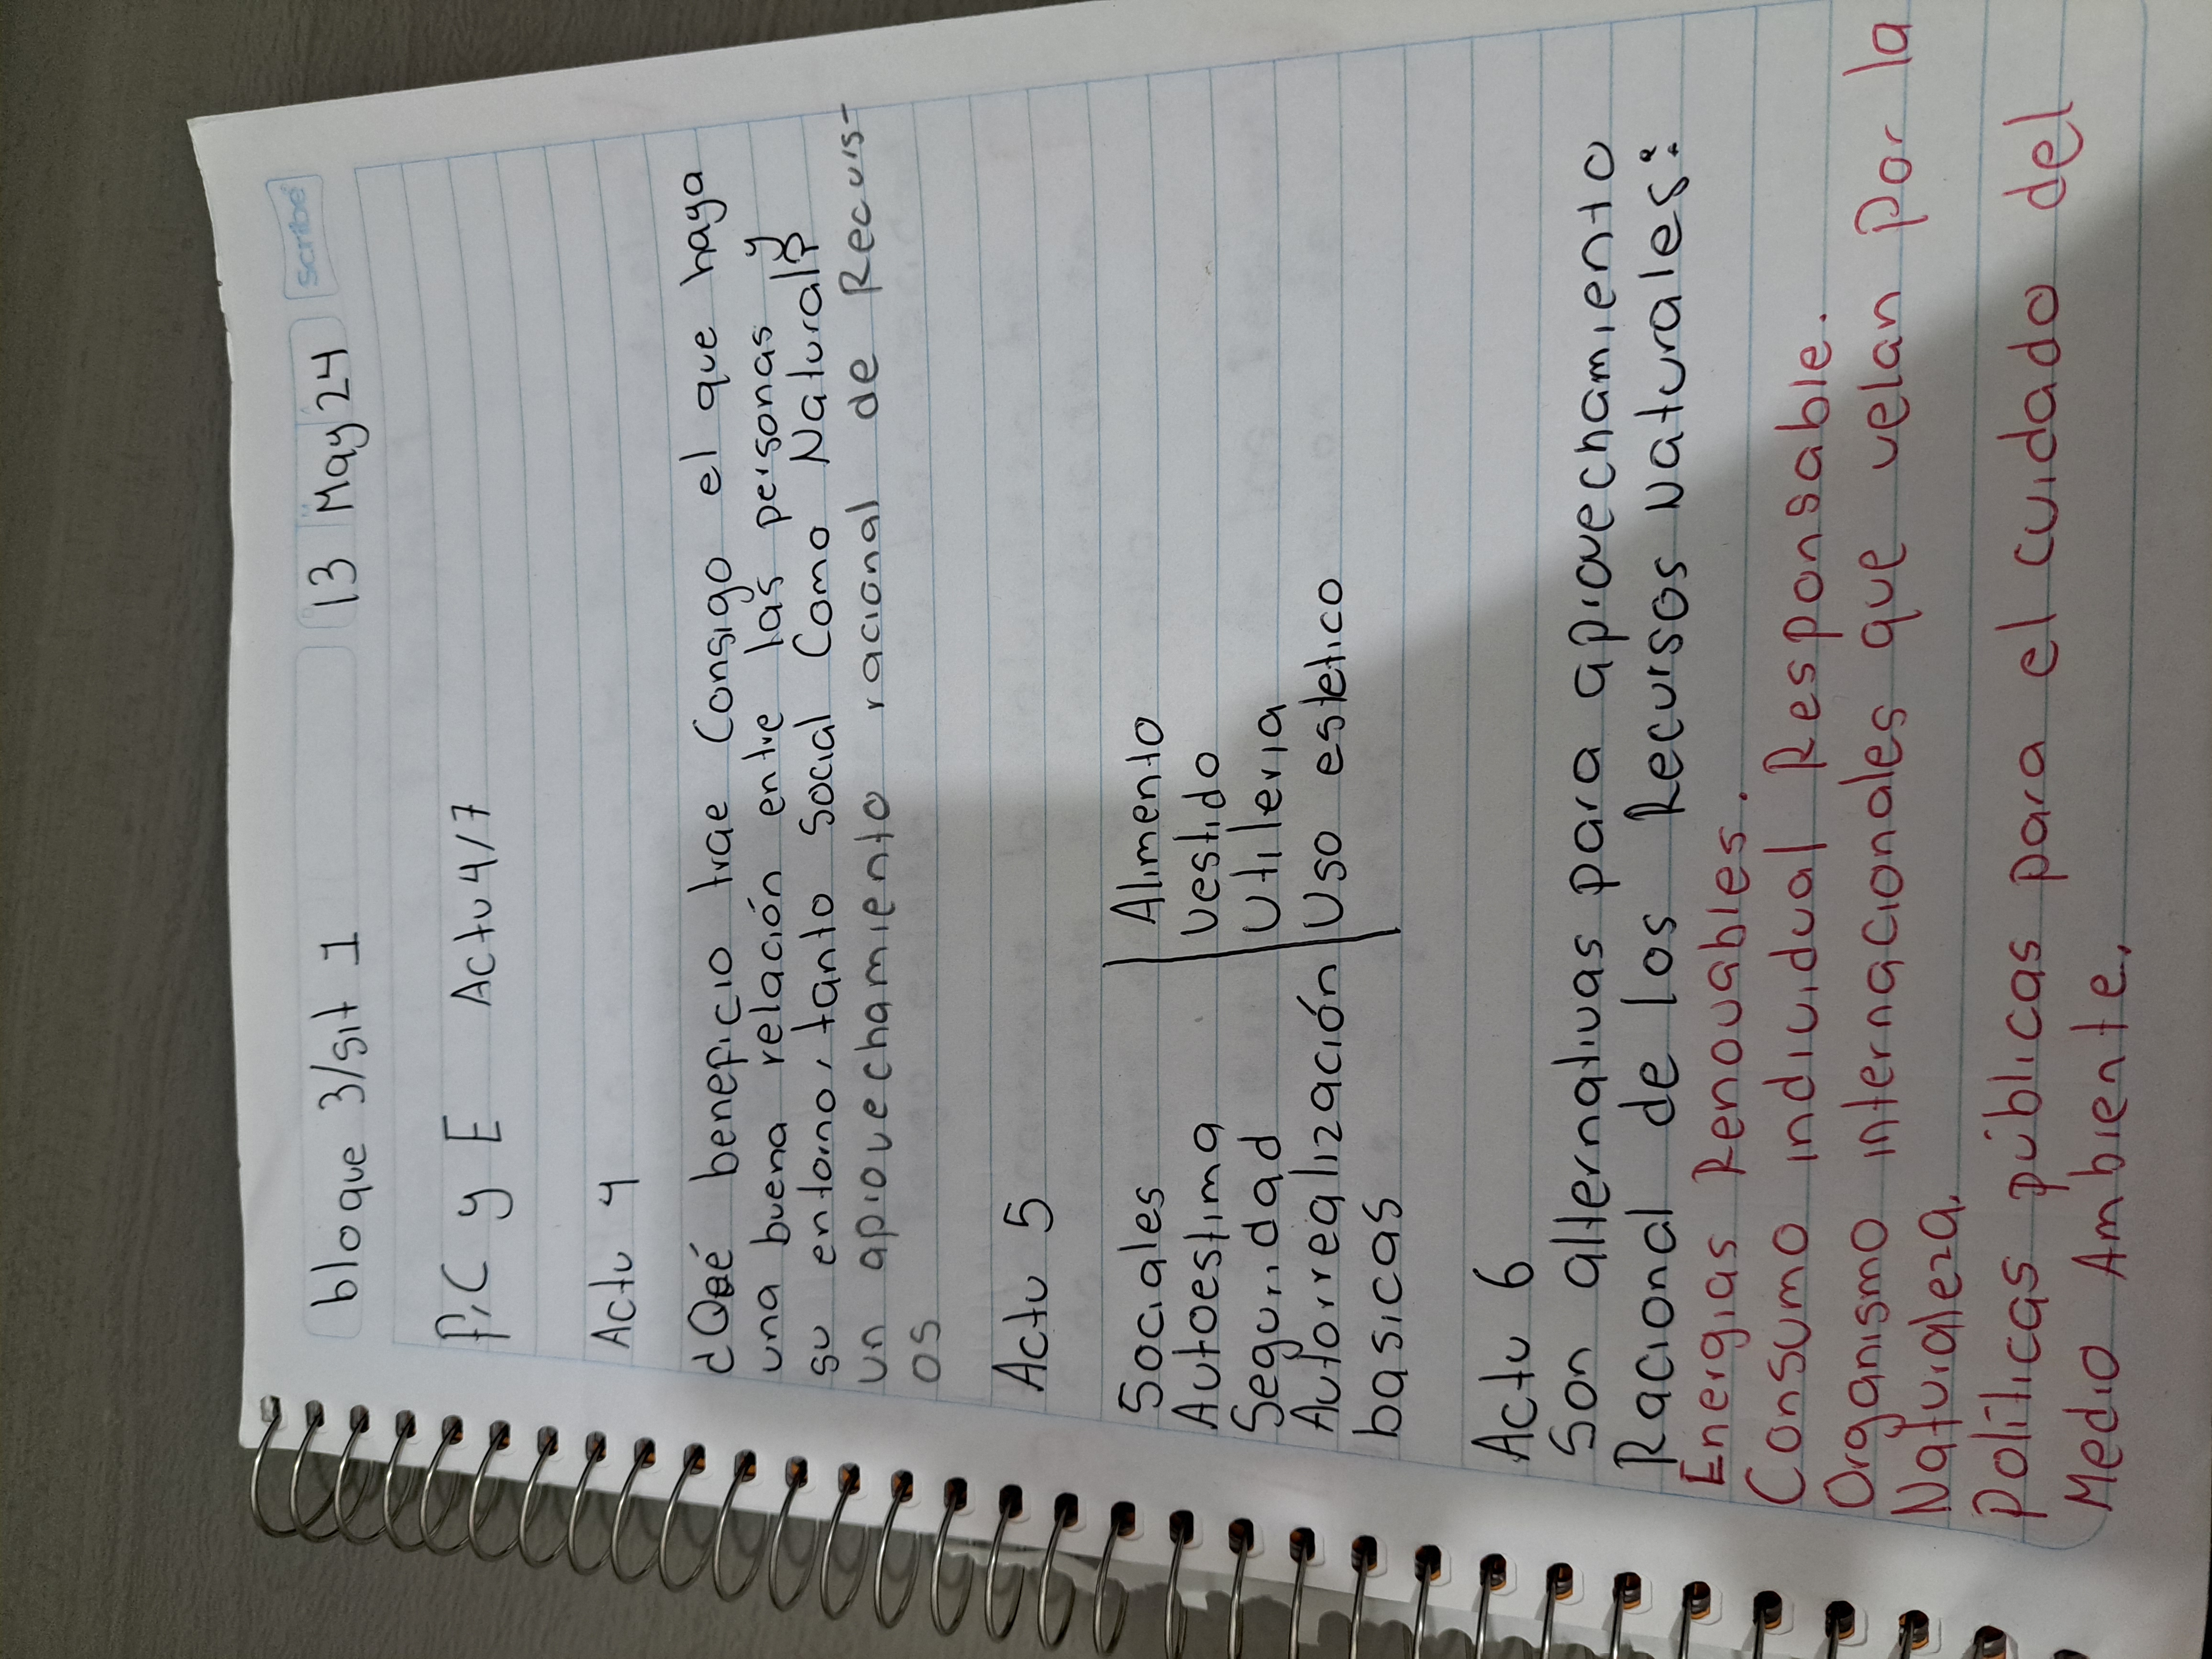 bloque 3/sit 1 13 May 24 scribe
P,C y E Actu 4/7
Actu 4
¿Qué beneficio trae Consigo el que haya
una buena relación entre las personas y
su entorno, tanto Social Como Natural?
un aprovechamiento racional de Recurs-
os
Actu 5
Sociales | Alimento
Autoestima | Vestido
Seguridad | Utileria
Autorrealización | Uso estetico
basicas
Actu 6
Son alternativas para aprovechamiento
Racional de los Recursos Naturales:
Energias Renovables.
Consumo individual Responsable.
Organismo internacionales que velan por la
Naturaleza.
Políticas públicas para el cuidado del
Medio Ambiente.